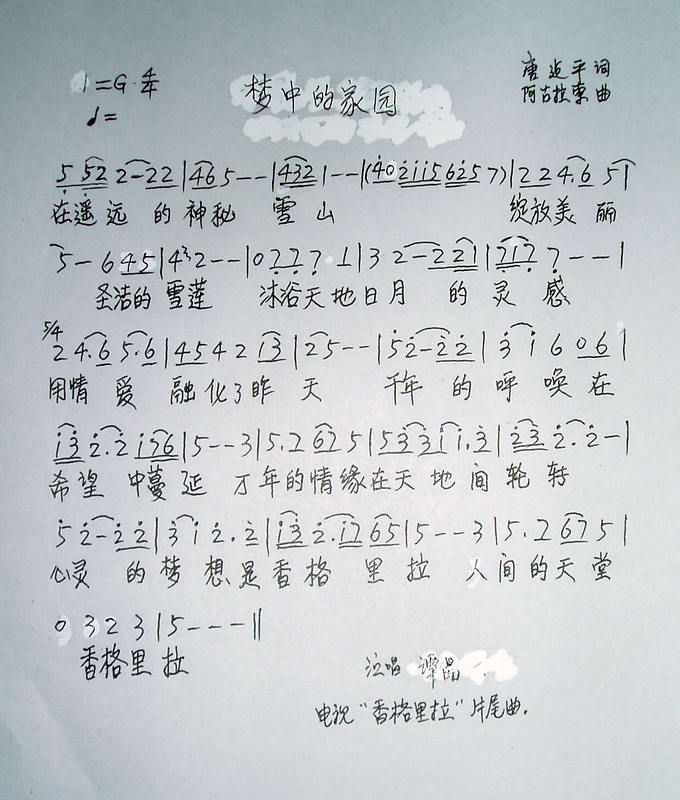 1=G 4/4
♩=
梦中的家园
唐近平词
阿古拉泰曲
5 52 2-22|465--|4321--|(402115625 7)|224.6 5|
在遥远的神秘雪山 绽放美丽
5-645|4³2--|0777 1|32-221|7177--|
圣洁的雪莲 沐浴天地日月的灵感
5/4
24.65.6|454213|25--|52-22|31606|
用情爱融化了昨天 千年的呼唤在
132.2176|5--3|5.2675|53311.3|232.2-|
希望中蔓延 万年的情缘在天地间轮转
52-22|312.2|132.1765|5--3|5.2675|
心灵的梦想是香格里拉 人间的天堂
0323|5---‖
香格里拉
演唱 谭晶
电视"香格里拉"片尾曲.